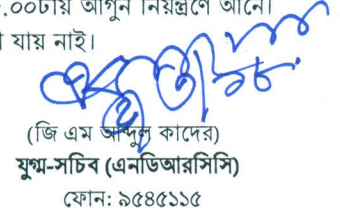 .০০টায় আগুন নিয়ন্ত্রণে আনে।
যায় নাই।
(জি এম আব্দুল কাদের)
যুগ্ম-সচিব (এনডিআরসিসি)
ফোন: ৯৫৪৫১১৫